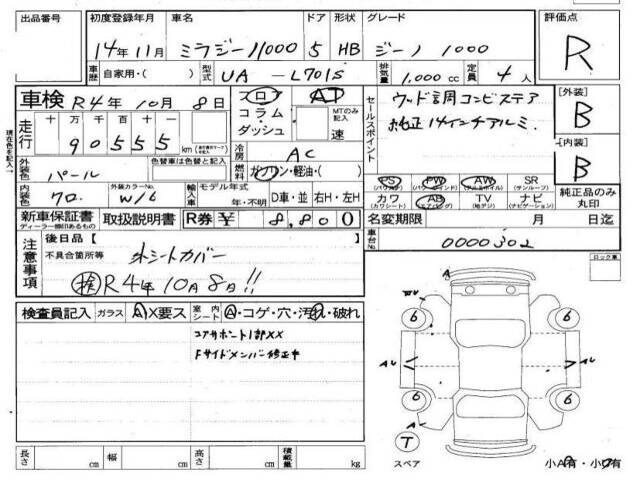 出品番号 初度登録年月 車名 ドア 形状 グレード 評価点
14年11月 ミラジーノ1000 5 HB ジーノ 1000 R
車歴 自家用・( ) 型式 UA-L701S 排気量 1,000cc 定員 4人
車検 R4年10月8日
フロア AT
コラム MTのみ記入
ダッシュ 速
走行 十 万 千 百 十 一
90555
セールスポイント
ウッド調コンビステア
純正14インチアルミ.
[外装]
B
[内装]
B
現在色を記入
外装色 色替車は色替と記入
パール
冷房 AC
燃料 ガソリン・軽油・( )
PS PW AW SR
(パワステ) (パワーウインド) (アルミホイル) (サンルーフ)
カワ AB TV ナビ
(カワシート) (エアバッグ) (地デジ) (ナビゲーション)
純正品のみ丸印
内装色 外装カラーNo. 輸入車 モデル年式
W16 年・不明 D車・並 右H・左H
新車保証書 取扱説明書 R券 ¥ 8,800
ディーラー捺印あるもの
名変期限 月 日迄
車台No. 0000302
注意事項
後日品【 】
不具合箇所等 シートカバー
検 R4年10月8日!!
ロック車
検査員記入 ガラス A X要ス 室内シート A・コゲ・穴・汚れ・破れ
コアサポート1部XX
Fサイドメンバー修正中
A
6 6
AU AU
6 6
A
T
スペア
小A有・小凹有
長さ cm 幅 cm 高さ cm 積載量 kg